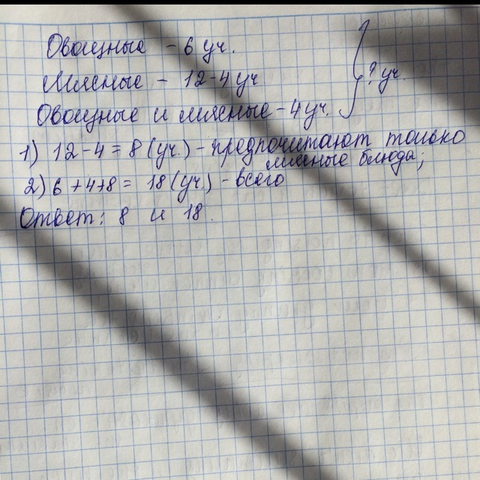 Овощные - 6 уч.
Мясные - 12-4 уч
Овощные и мясные - 4 уч.
? уч
1) 12-4=8 (уч.) - предпочитают только
мясные блюда;
2) 6+4+8= 18 (уч.) - всего
Ответ: 8 и 18.